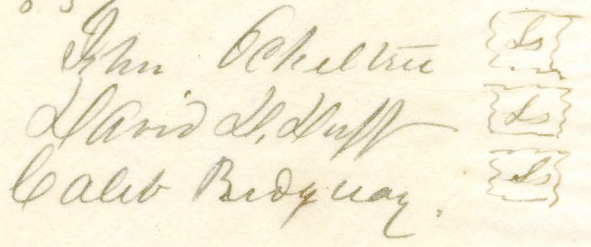 John Ocheltree Ls
David D. Duff Ls
Caleb Ls